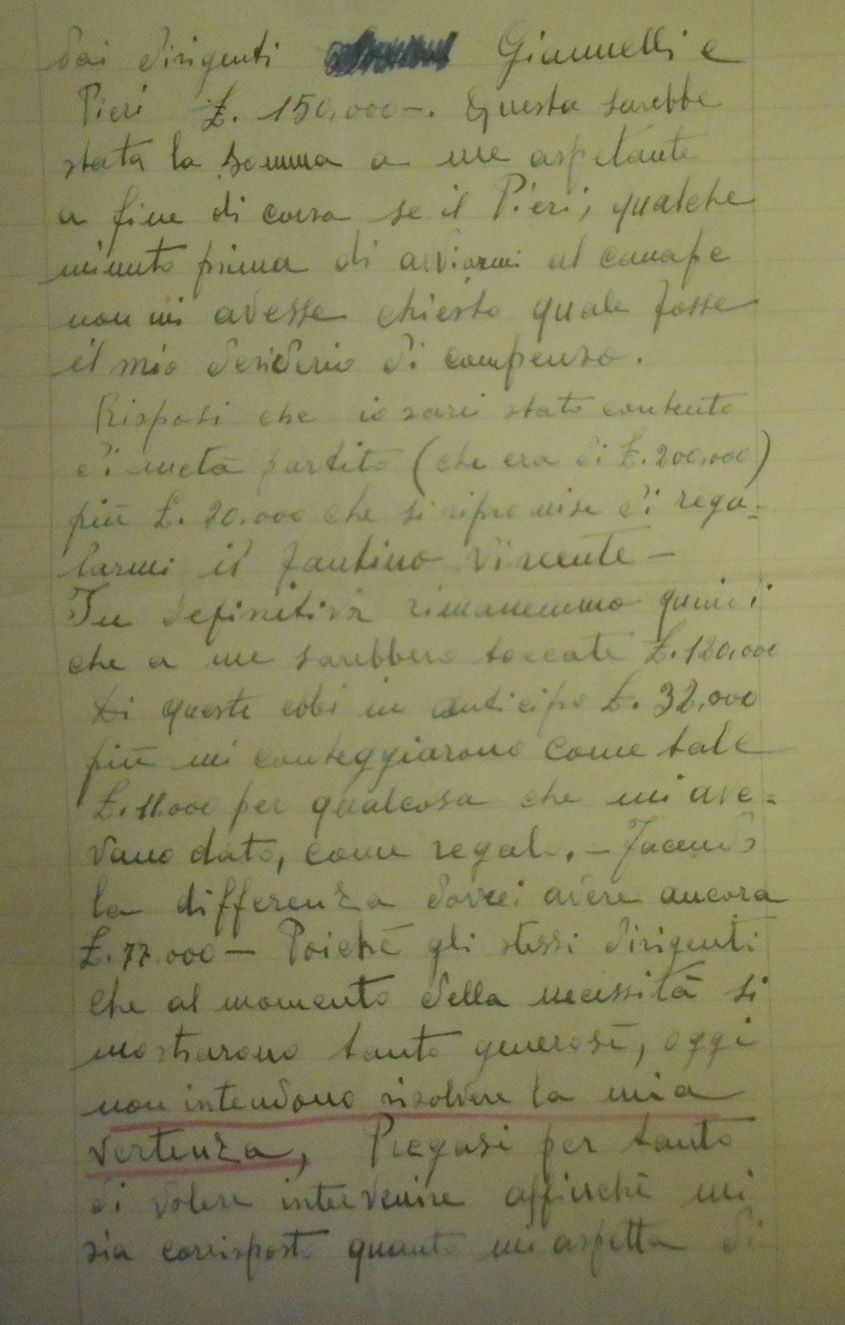 dai dirigenti Giannelli e
Pieri £. 150.000-. Questa sarebbe
stata la somma a me aspetante
a fine di corsa se il Pieri, qualche
minuto prima di avviarmi al canape
non mi avesse chiesto quale fosse
il mio desiderio di compenso.
Risposi che io sarei stato contento
di metà partito (che era di £. 200.000)
più £. 20.000 che si ripromise di rega=
larmi il fantino vincente -
In definitiva rimanemmo quindi
che a me sarebbero toccate £. 120.000
Di queste ebbi in anticipo £. 32.000
più mi conteggiarono come tale
£. 11.000 per qualcosa che mi ave=
vano dato, come regalo. - Facendo
la differenza dovrei avere ancora
£. 77.000 - Poichè gli stessi dirigenti
che al momento della necessità si
mostrarono tanto generosi, oggi
non intendono risolvere la mia
vertenza, Pregasi per tanto
di volere intervenire affinchè mi
sia corrisposto quanto mi aspetta di